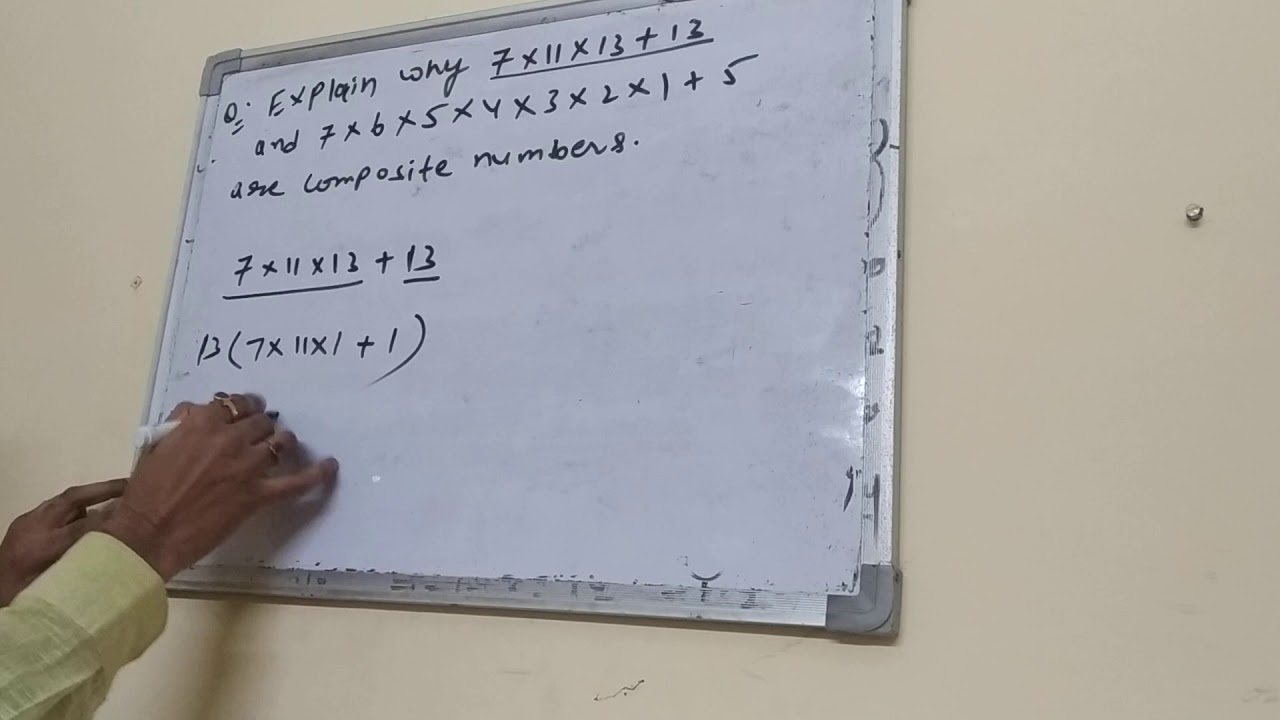 Q: Explain why 7×11×13+13
and 7×6×5×4×3×2×1+5
are composite numbers.
7×11×13 + 13
13(7×11×1 + 1)